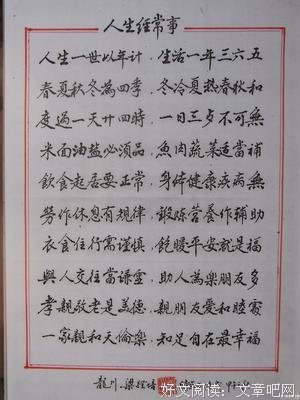 人生经常事
人生一世以年计，生活一年三六五
春夏秋冬為四季，冬冷夏热春秋和
度過一天廿四時，一日三歺不可無
米面油盐必须品，魚肉蔬菜适當補
飲食起居要正常，身体健康疾病無
劳作休息有规律，鍛炼营養作辅助
衣食住行需谨慎，饱暖平安就是福
與人交往當谦虚，助人為樂朋友多
孝親敬老是美德，親朋友爱和睦處
一家親和天倫樂，知足自在最幸福
龍川
好文阅读：文章吧网